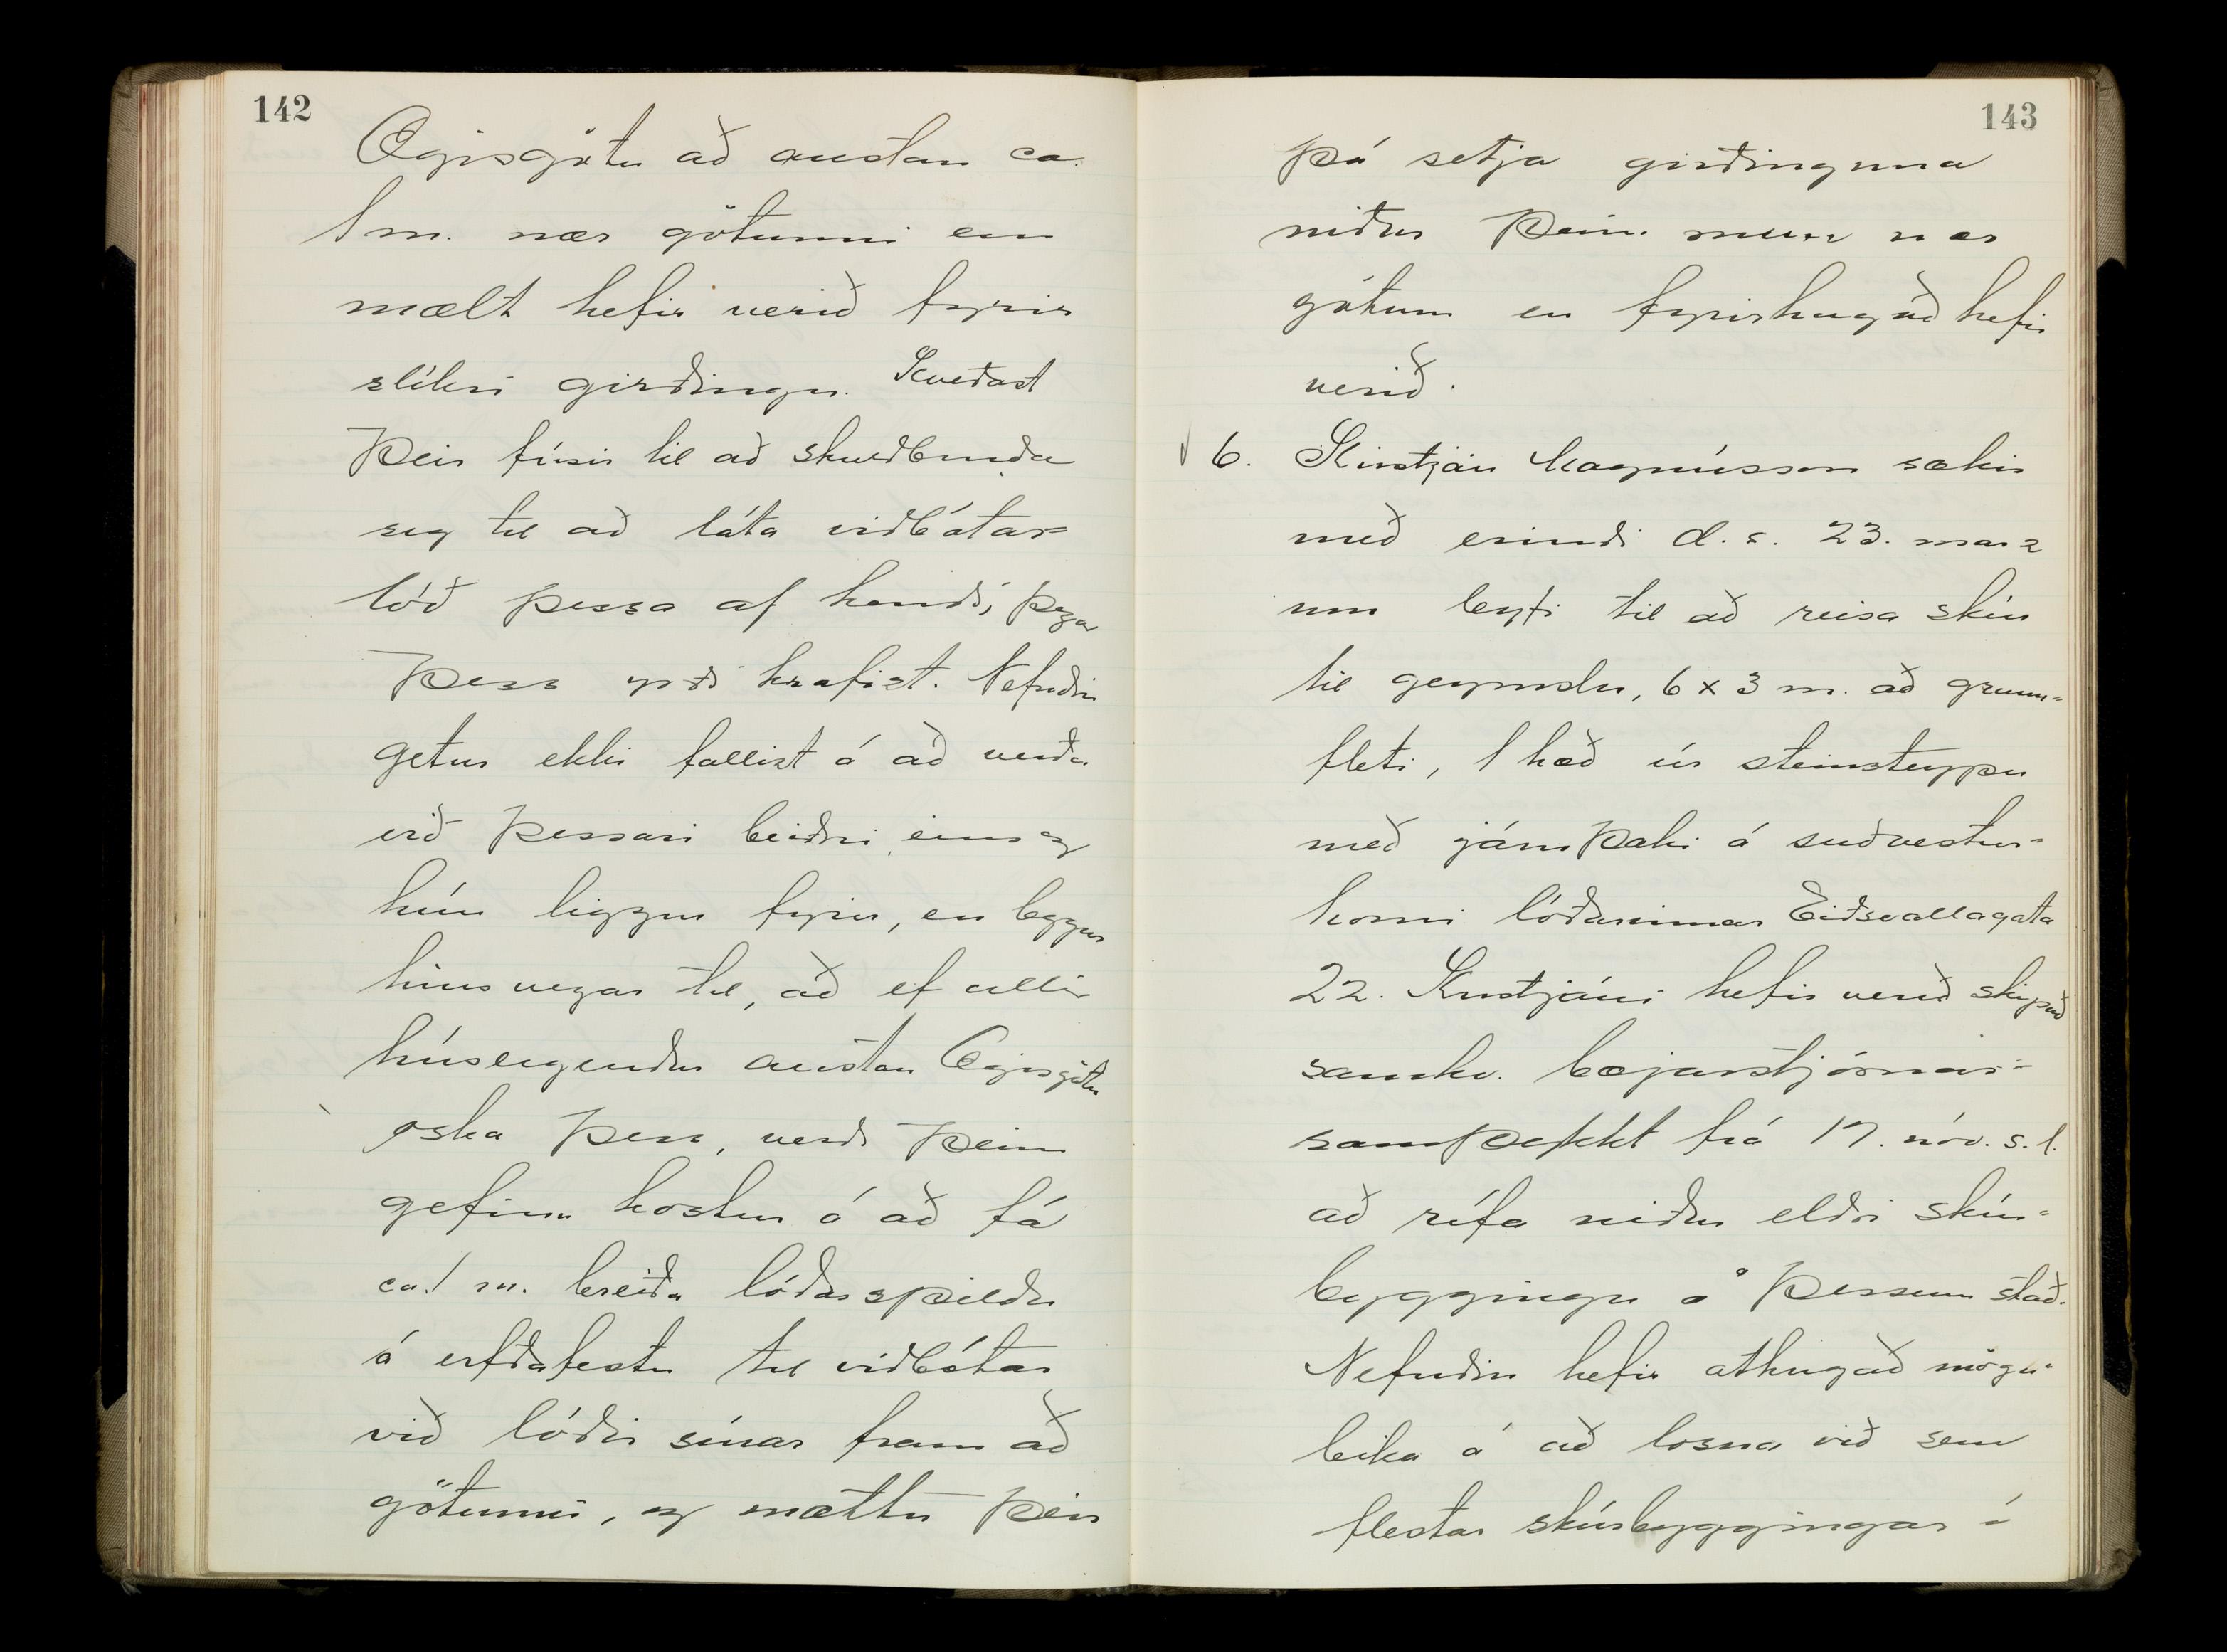 142
Ægisgötu að austan ca.
1 m. nær götunni en
mælt hefir verið fyrir
slíkri girðingu. Kveðast
þeir fúsir til að skuldbinda
sig til að láta viðbótar=
lóð þessa af hendi, þegar
þess yrði krafist. Nefndin
getur ekki fallist á að verða
við þessari beiðni, eins og
hún liggur fyrir, en leggur
hins vegar til, að ef allir
húseigendur austan Ægisgötu
óska þess, verði þeim
gefinn kostur á að fá
ca. 1 m. breiða lóðarspildu
á erfðafestu til viðbótar
við lóðir sínar fram að
götunni, og mættu þeir
143
þá setja girðinguna
niður þeim mun nær
götum en fyrirhugað hefir
verið.
6. Kristján Magnússon sækir
með erindi d.s. 23. marz
um leyfi til að reisa skúr
til geymslu, 6 x 3 m. að grunn=
fleti, 1 hæð úr steinsteypu
með járnþaki á suðvestur=
horni lóðarinnar Eiðsvallagata
22. Kristjáni hefir verið skipað
samkv. bæjarstjórnar=
samþykkt frá 17. nóv. s.l.
að rífa niður eldri skúr=
byggingu á þessum stað.
Nefndin hefir athugað mögu=
leika á að losna við sem
flestar skúrbyggingar í